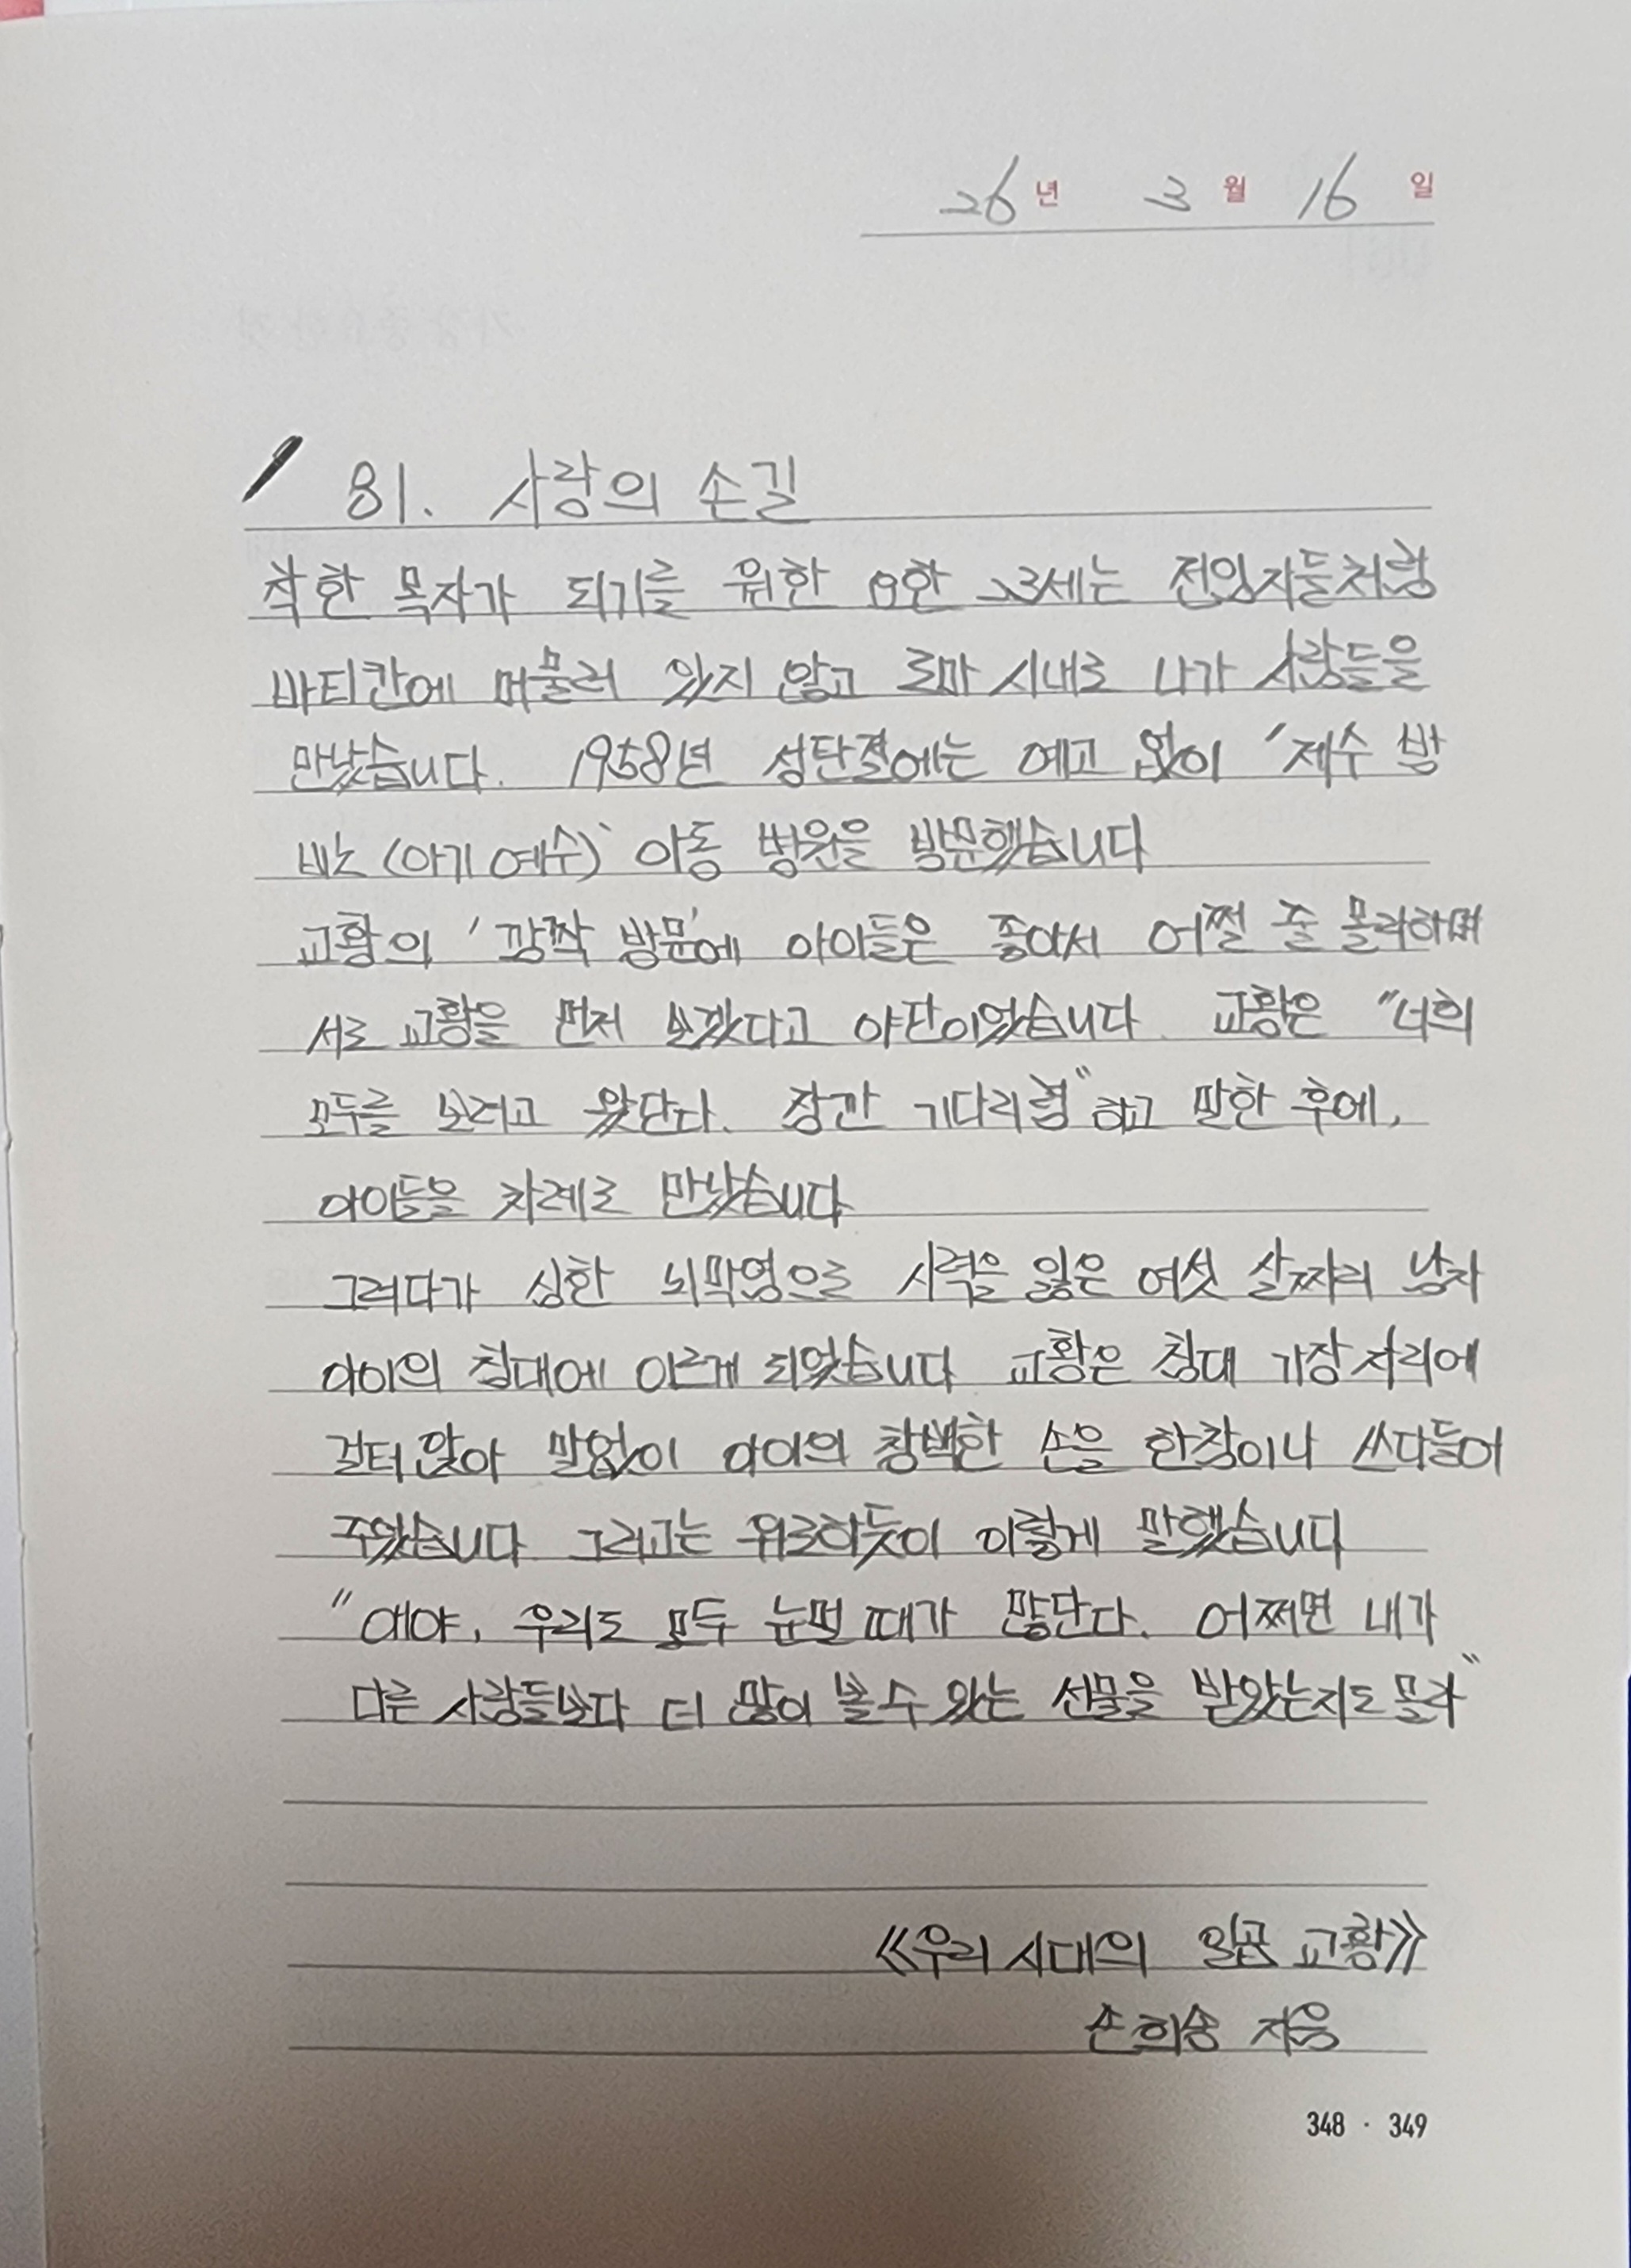 26년 3월 16일
81. 사랑의 손길
착한 목자가 되기를 위한 요한 23세는 전임자들처럼
바티칸에 머물러 있지 않고 로마 시내로 나가 사람들을
만났습니다. 1958년 성탄절에는 예고 없이 '제수 밤
비노 (아기 예수)' 아동 병원을 방문했습니다
교황의 '깜짝 방문'에 아이들은 좋아서 어쩔 줄 몰라하며
서로 교황을 먼저 보겠다고 야단이었습니다. 교황은 "너희
모두를 보려고 왔단다. 잠깐 기다리렴" 하고 말한 후에,
아이들을 차례로 만났습니다
그러다가 심한 뇌막염으로 시력을 잃은 여섯 살짜리 남자
아이의 침대에 이르게 되었습니다 교황은 침대 가장자리에
걸터 앉아 말없이 아이의 창백한 손을 한참이나 쓰다듬어
주었습니다 그리고는 위로하듯이 이렇게 말했습니다
"얘야, 우리도 모두 눈멀 때가 많단다. 어쩌면 네가
다른 사람들보다 더 많이 볼 수 있는 선물을 받았는지도 몰라"
《우리 시대의 일곱 교황》
손희송 지음
348 · 349